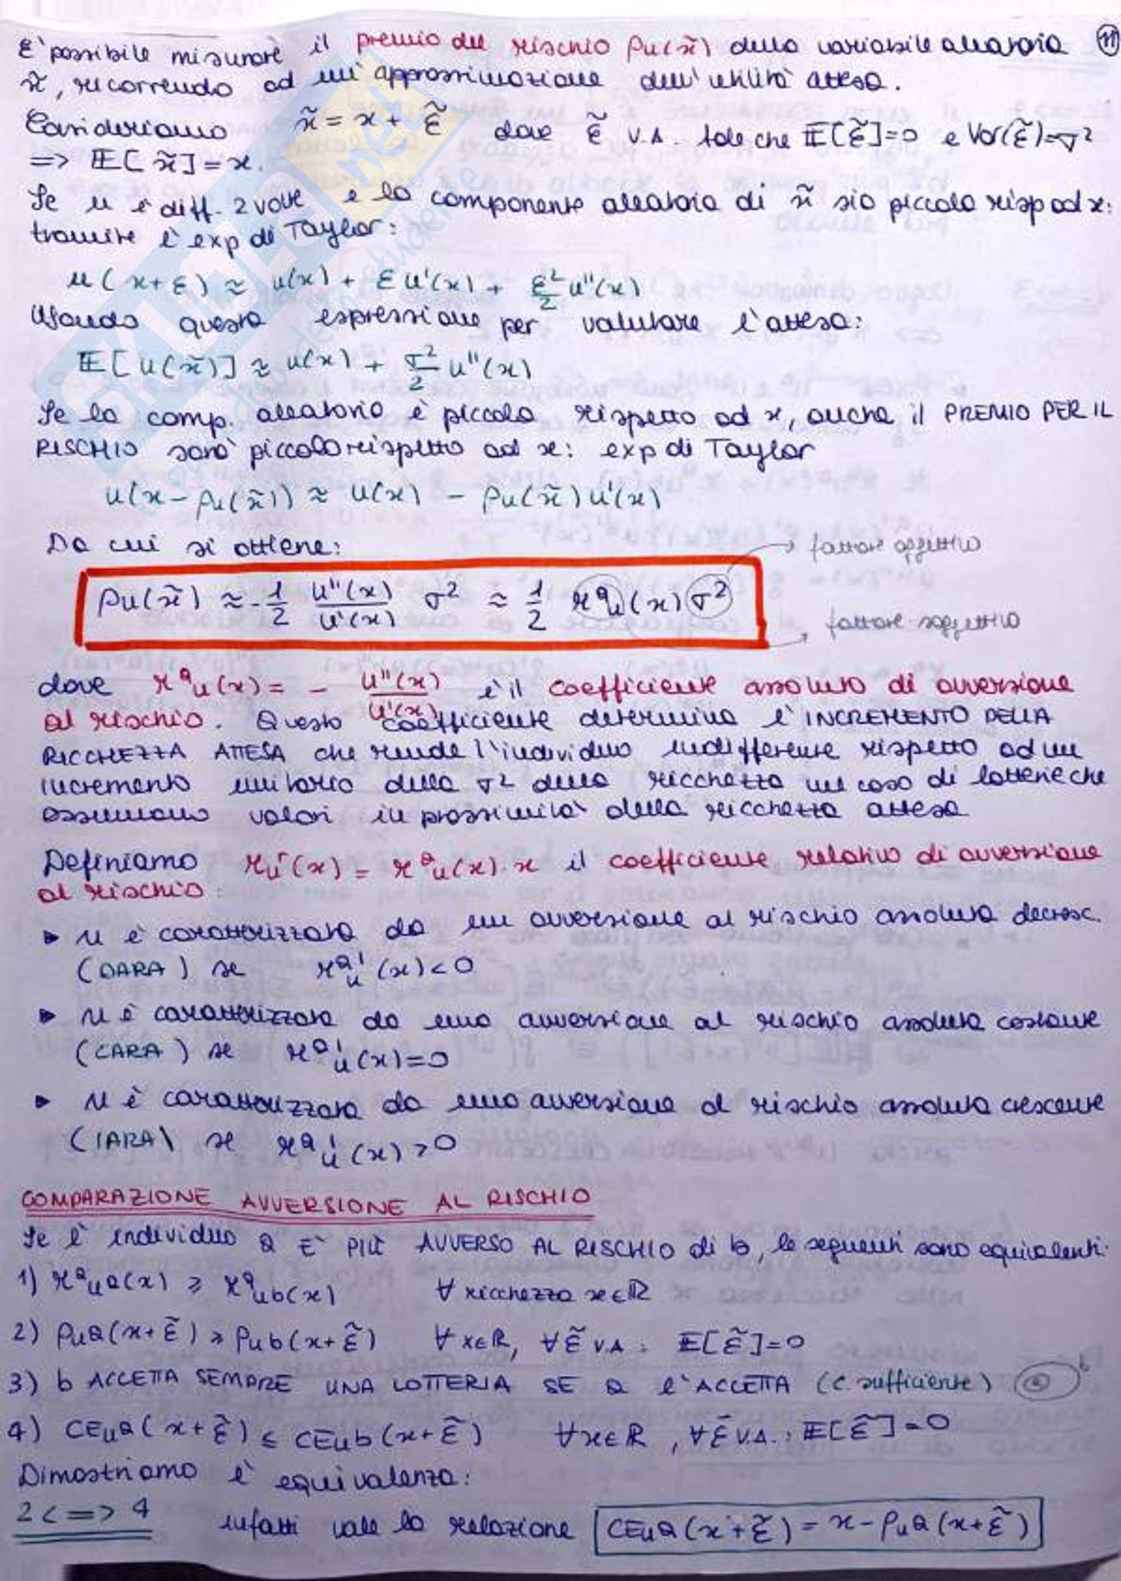 E' possibile misurare il premio del rischio ρu(x̃) della variabile aleatoria (11)
x̃, ricorrendo ad un'approssimazione dell'utilità attesa.
Consideriamo x̃ = x + ε̃ dove ε̃ V.A. tale che 𝔼[ε̃]=0 e Var(ε̃)=σ²
=> 𝔼[x̃] = x.
Se u è diff. 2 volte e la componente aleatoria di x̃ sia piccola risp ad x:
tramite l'exp di Taylor:
u(x+ε) ≈ u(x) + εu'(x) + ε²/2 u''(x)
Usando questa espressione per valutare l'attesa:
𝔼[u(x̃)] ≈ u(x) + σ²/2 u''(x)
Se la comp. aleatoria è piccola rispetto ad x, anche il PREMIO PER IL
RISCHIO sarà piccolo rispetto ad x: exp di Taylor
u(x - ρu(x̃)) ≈ u(x) - ρu(x̃)u'(x)
Da cui si ottiene:
→ fattore oggettivo
ρu(x̃) ≈ -1/2 u''(x)/u'(x) σ² ≈ 1/2 rᵃu(x)σ²
→ fattore soggettivo
dove rᵃu(x) = - u''(x)/u'(x) è il coefficiente assoluto di avversione
al rischio. Questo coefficiente determina l'INCREMENTO DELLA
RICCHEZZA ATTESA che rende l'individuo indifferente rispetto ad un
incremento unitario della σ² della ricchezza nel caso di lotterie che
assumano valori in prossimità della ricchezza attesa
Definiamo rʳu(x) = rᵃu(x)·x il coefficiente relativo di avversione
al rischio:
▸ u è caratterizzata da un avversione al rischio assoluta decresc.
(DARA) se rᵃ'u(x)<0
▸ u è caratterizzata da una avversione al rischio assoluta costante
(CARA) se rᵃ'u(x)=0
▸ u è caratterizzata da una avversione al rischio assoluta crescente
(IARA) se rᵃ'u(x)>0
COMPARAZIONE AVVERSIONE AL RISCHIO
Se l'individuo a E' PIÙ AVVERSO AL RISCHIO di b, le seguenti sono equivalenti:
1) rᵃua(x) ≥ rᵃub(x) ∀ ricchezza x∈ℝ
2) ρua(x+ε̃) ≥ ρub(x+ε̃) ∀x∈ℝ, ∀ε̃ V.A : 𝔼[ε̃]=0
3) b ACCETTA SEMPRE UNA LOTTERIA SE a L'ACCETTA (c. sufficiente) a b
4) CEua(x+ε̃) ≤ CEub(x+ε̃) ∀x∈ℝ, ∀ε̃ V.A.: 𝔼[ε̃]=0
Dimostriamo l'equivalenza:
2 <=> 4 infatti vale la relazione CEua(x+ε̃) = x - ρua(x+ε̃)